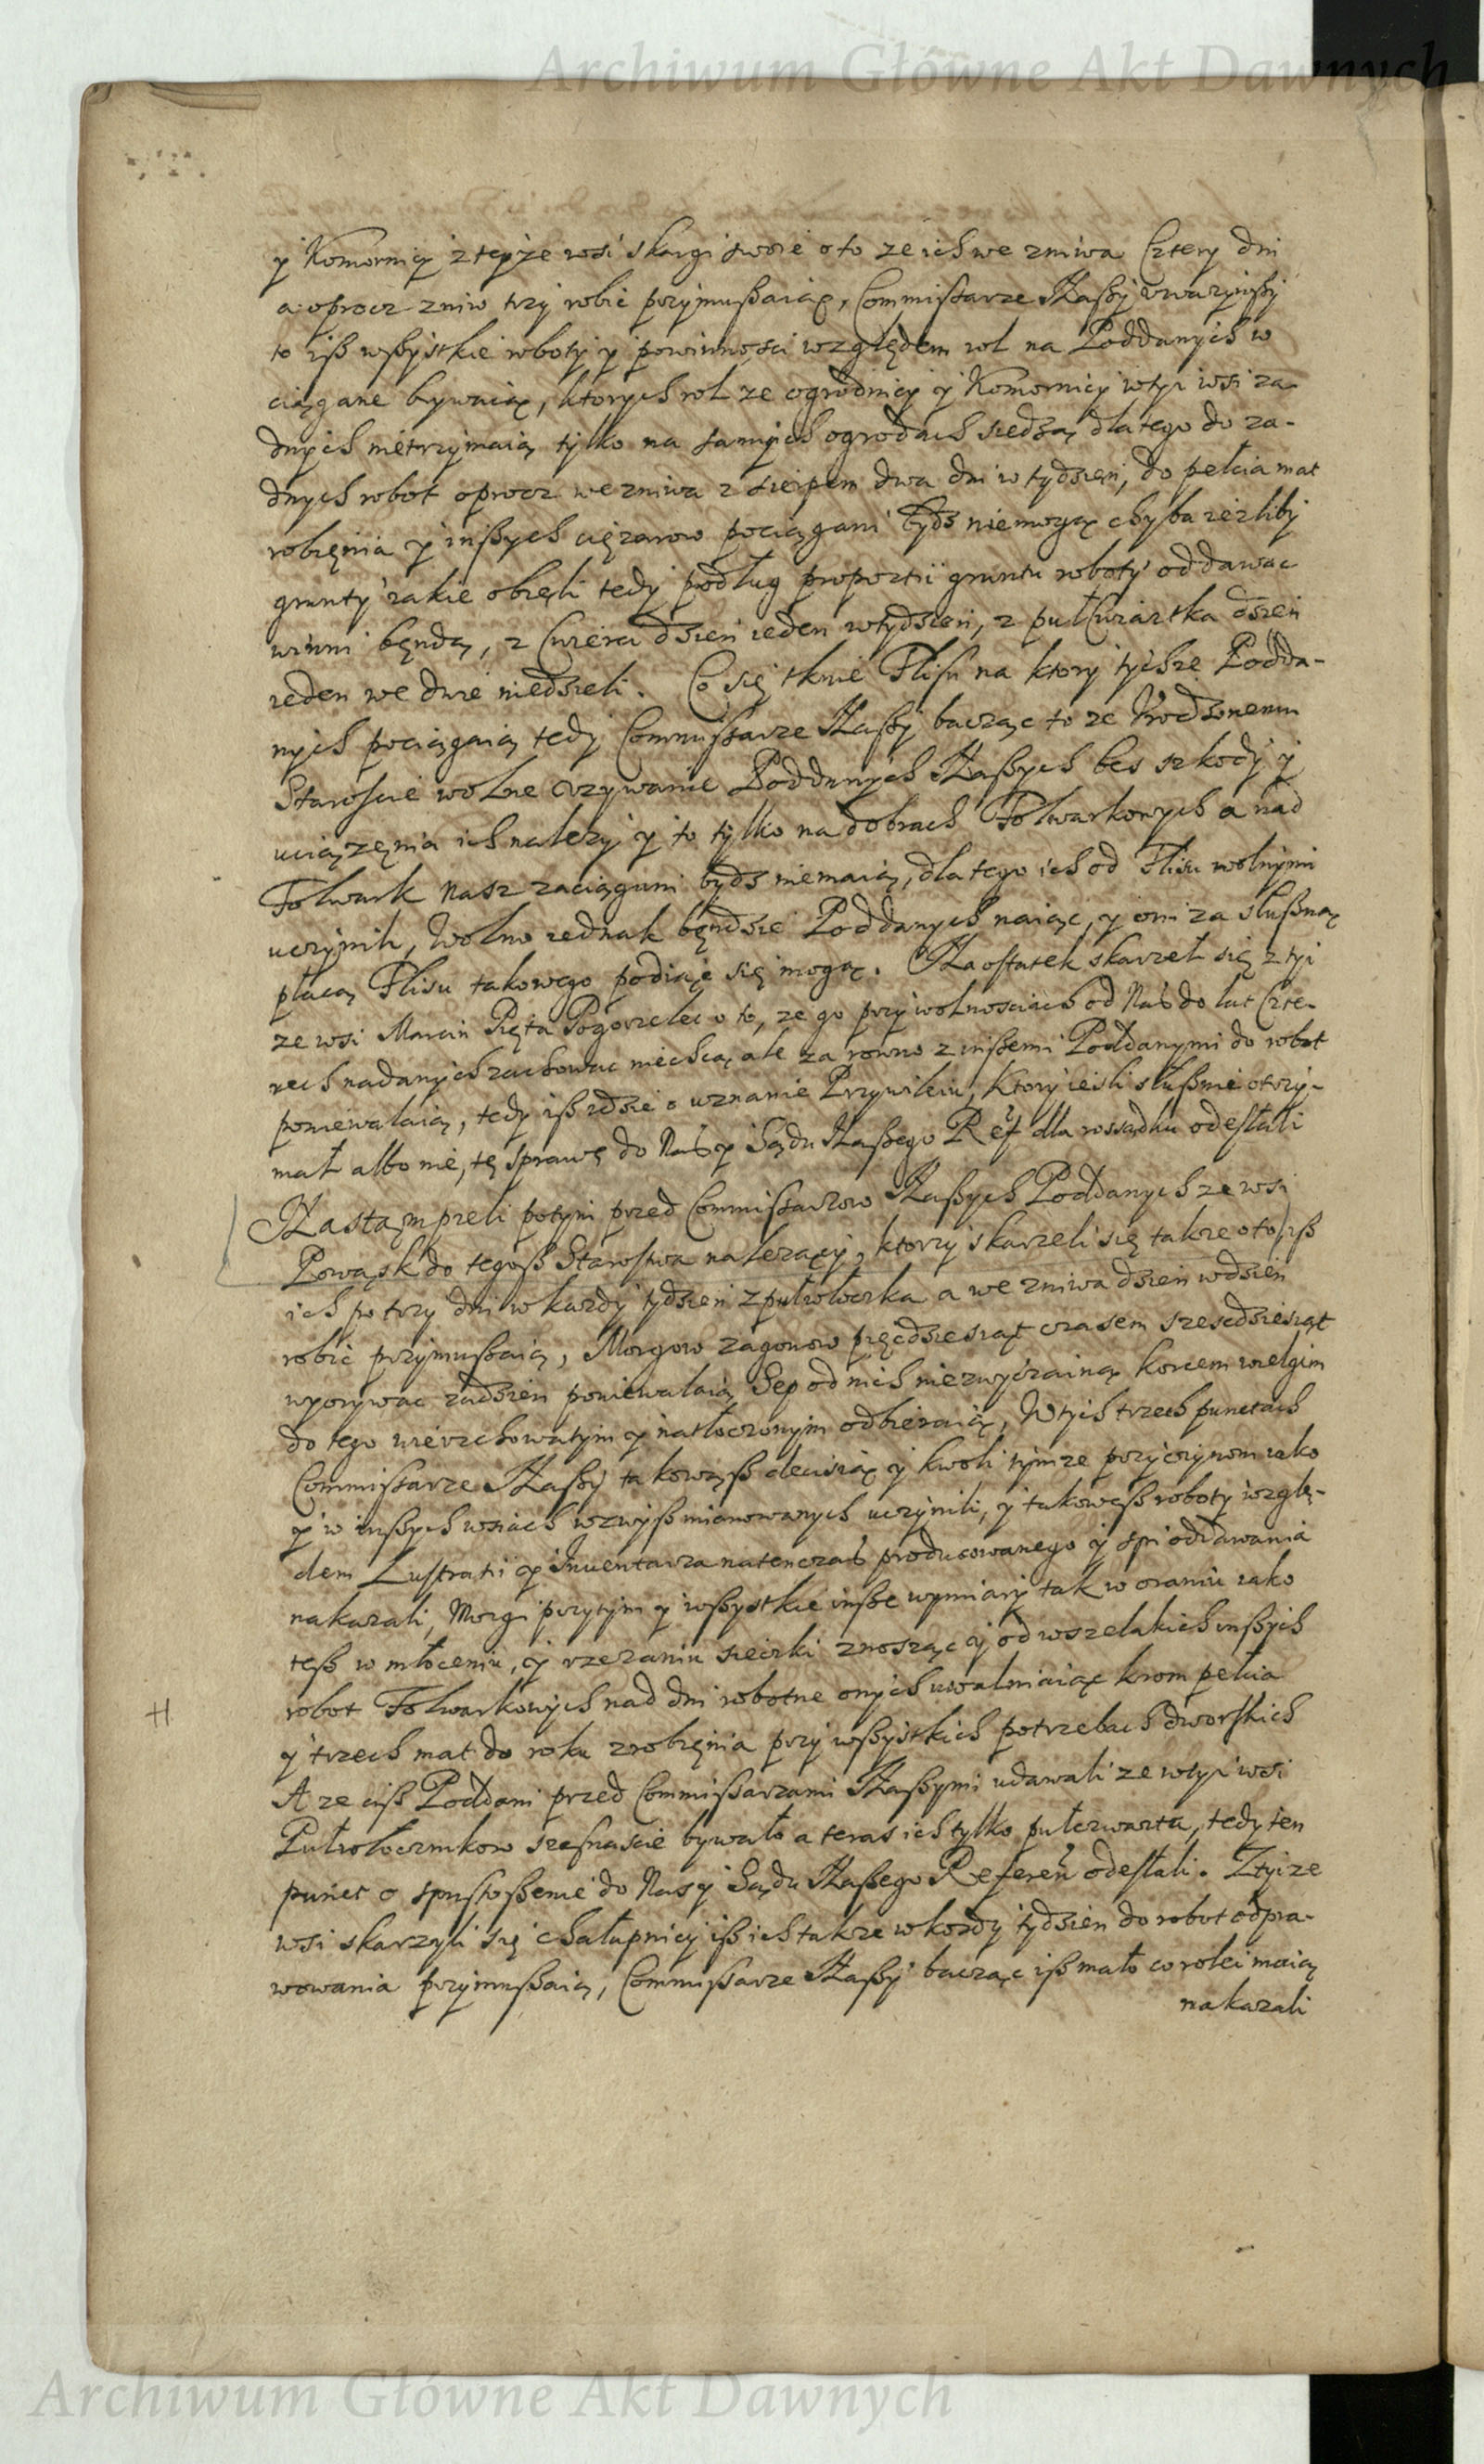 Archiwum Główne Akt Dawnych
y Komornicy z teyze wsi skargi swoie o to ze ich we zniwa Cztery dni
a oprocz zniw trzy robic przymußaiąc, Commissarze Naßy uwazywßy
to iß wßystkie roboty y powinnosci względem rol na Poddanych w
ciągane bywaią, ktorych rol ze ogrodnicy y Komornicy w tyi wsi za
dnych nietrzymaią tylko na samych ogrodach siedzą dla tego do za-
dnych robot oprocz we zniwa z sierpem dwa dni w tydzien, do pełcia mat
robięnia y inßych ciężarow pociągani bydz niemogą chyba iezliby
grunty iakie obięli tedy podług proportii gruntu roboty oddawac
winni będą, z Cwierci dzien ieden w tydzien, z puł Cwiartka dzien
ieden we dwie niedzieli. Co się tknie Flisu na ktory tychze Podda-
nych pociągaią tedy Commissarze Naßy bacząc to ze Urodzonemu
Staroscie wolne uzywanie Poddanych Naßych bes szkody y
uciązęnia ich nalezy y to tylko na dobrach Folwarkowych a nad
Folwark nasz zaciągani bydz niemaią, dla tego ich od Flisu wolnymi
uczynili, Wolno iednak będzie Poddanych naiąc, y oni za słußną
płacą Flisu takowego podiąc się mogą. Na ostatek skarzeł się z tyi
ze wsi Marcin Pięta Pogorzelec o to, ze go przy wolnosciach od Nas do lat Czte-
rech nadanych zachowac niechcą, ale za rowno z inßemi Poddanymi do robot
poniewalaią, tedy iß idzie o uznanie Przywileiu, ktory iesli słußnie otrzy-
mał albo nie, tę sprawę do Nas y Sądu Naßego Ref dla rossądku odesłali
Nastąmpieli potym przed Commissarzow Naßych Poddanych ze wsi
Powąsk do tegoß Starostwa nalezący, ktorzy skarzeli się takze o to iß
ich po trzy dni w kazdy tydzien z pułwłoczka a we zniwa dzien w dzien
robic przymußaią, Morgow zagonow pięcdziesiąt czasem szescdziesiąt
wyorywac za dzien poniewalaią Sep od nich niezwyczainą korcem wielgim
do tego wierzchowatym y natłoczonym odbieraią, W tych trzech punctach
Commissarze Naßy takowąß decisią y kwoli tymze przyczynom iako
y w inßych wsiach wzwyß mianowanych uczynili, y takoweß roboty wzglę-
dem Lustratii y Inwentarza natenczas producowanego y spi oddawania
nakazali, Morgi przytym y wßystkie inße wymiary tak w oraniu iako
teß w młoceniu, y rzezaniu sieczki znosząc y od wszelakich inßych
robot Folwarkowych nad dni robotne onych uwalniaiąc krom pełcia
y trzech mat do roku zrobięnia przy wßystkich potrzebach dworskich
A ze ciß Poddani przed Commissarzami Naßymi udawali ze w tyi wsi
Pułwłocznikow szesnascie bywało a teras ich tylko pułczwarta, tedy ten
punct o spustoßenie do Nas y Sądu Naßego Referen odesłali. Z tyi ze
wsi skarzyli się chałupnicy iß ich takze w kozdy tydzien do robot odpra-
wowania przymußaią, Commissarze Naßy bacząc iß mało co rolei maią
nakazali
H
Archiwum Główne Akt Dawnych